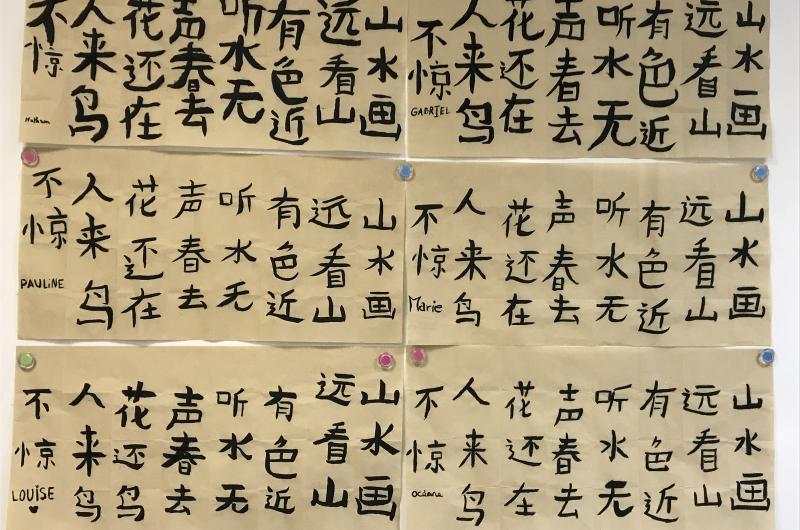 山水画
远看山
有色近
听水无
声春去
花还在
人来鸟
不惊
Nathan
山水画
远看山
有色近
听水无
声春去
花还在
人来鸟
不惊
GABRIEL
山水画
远看山
有色近
听水无
声春去
花还在
人来鸟
不惊
PAULiNE
山水画
远看山
有色近
听水无
声春去
花还在
人来鸟
不惊
Marie
山水画
远看山
有色近
听水无
声春去
花还鸟
人来鸟
不惊
LOUiSE
山水画
远看山
有色近
听水无
声春去
花还在
人来鸟
不惊
océane